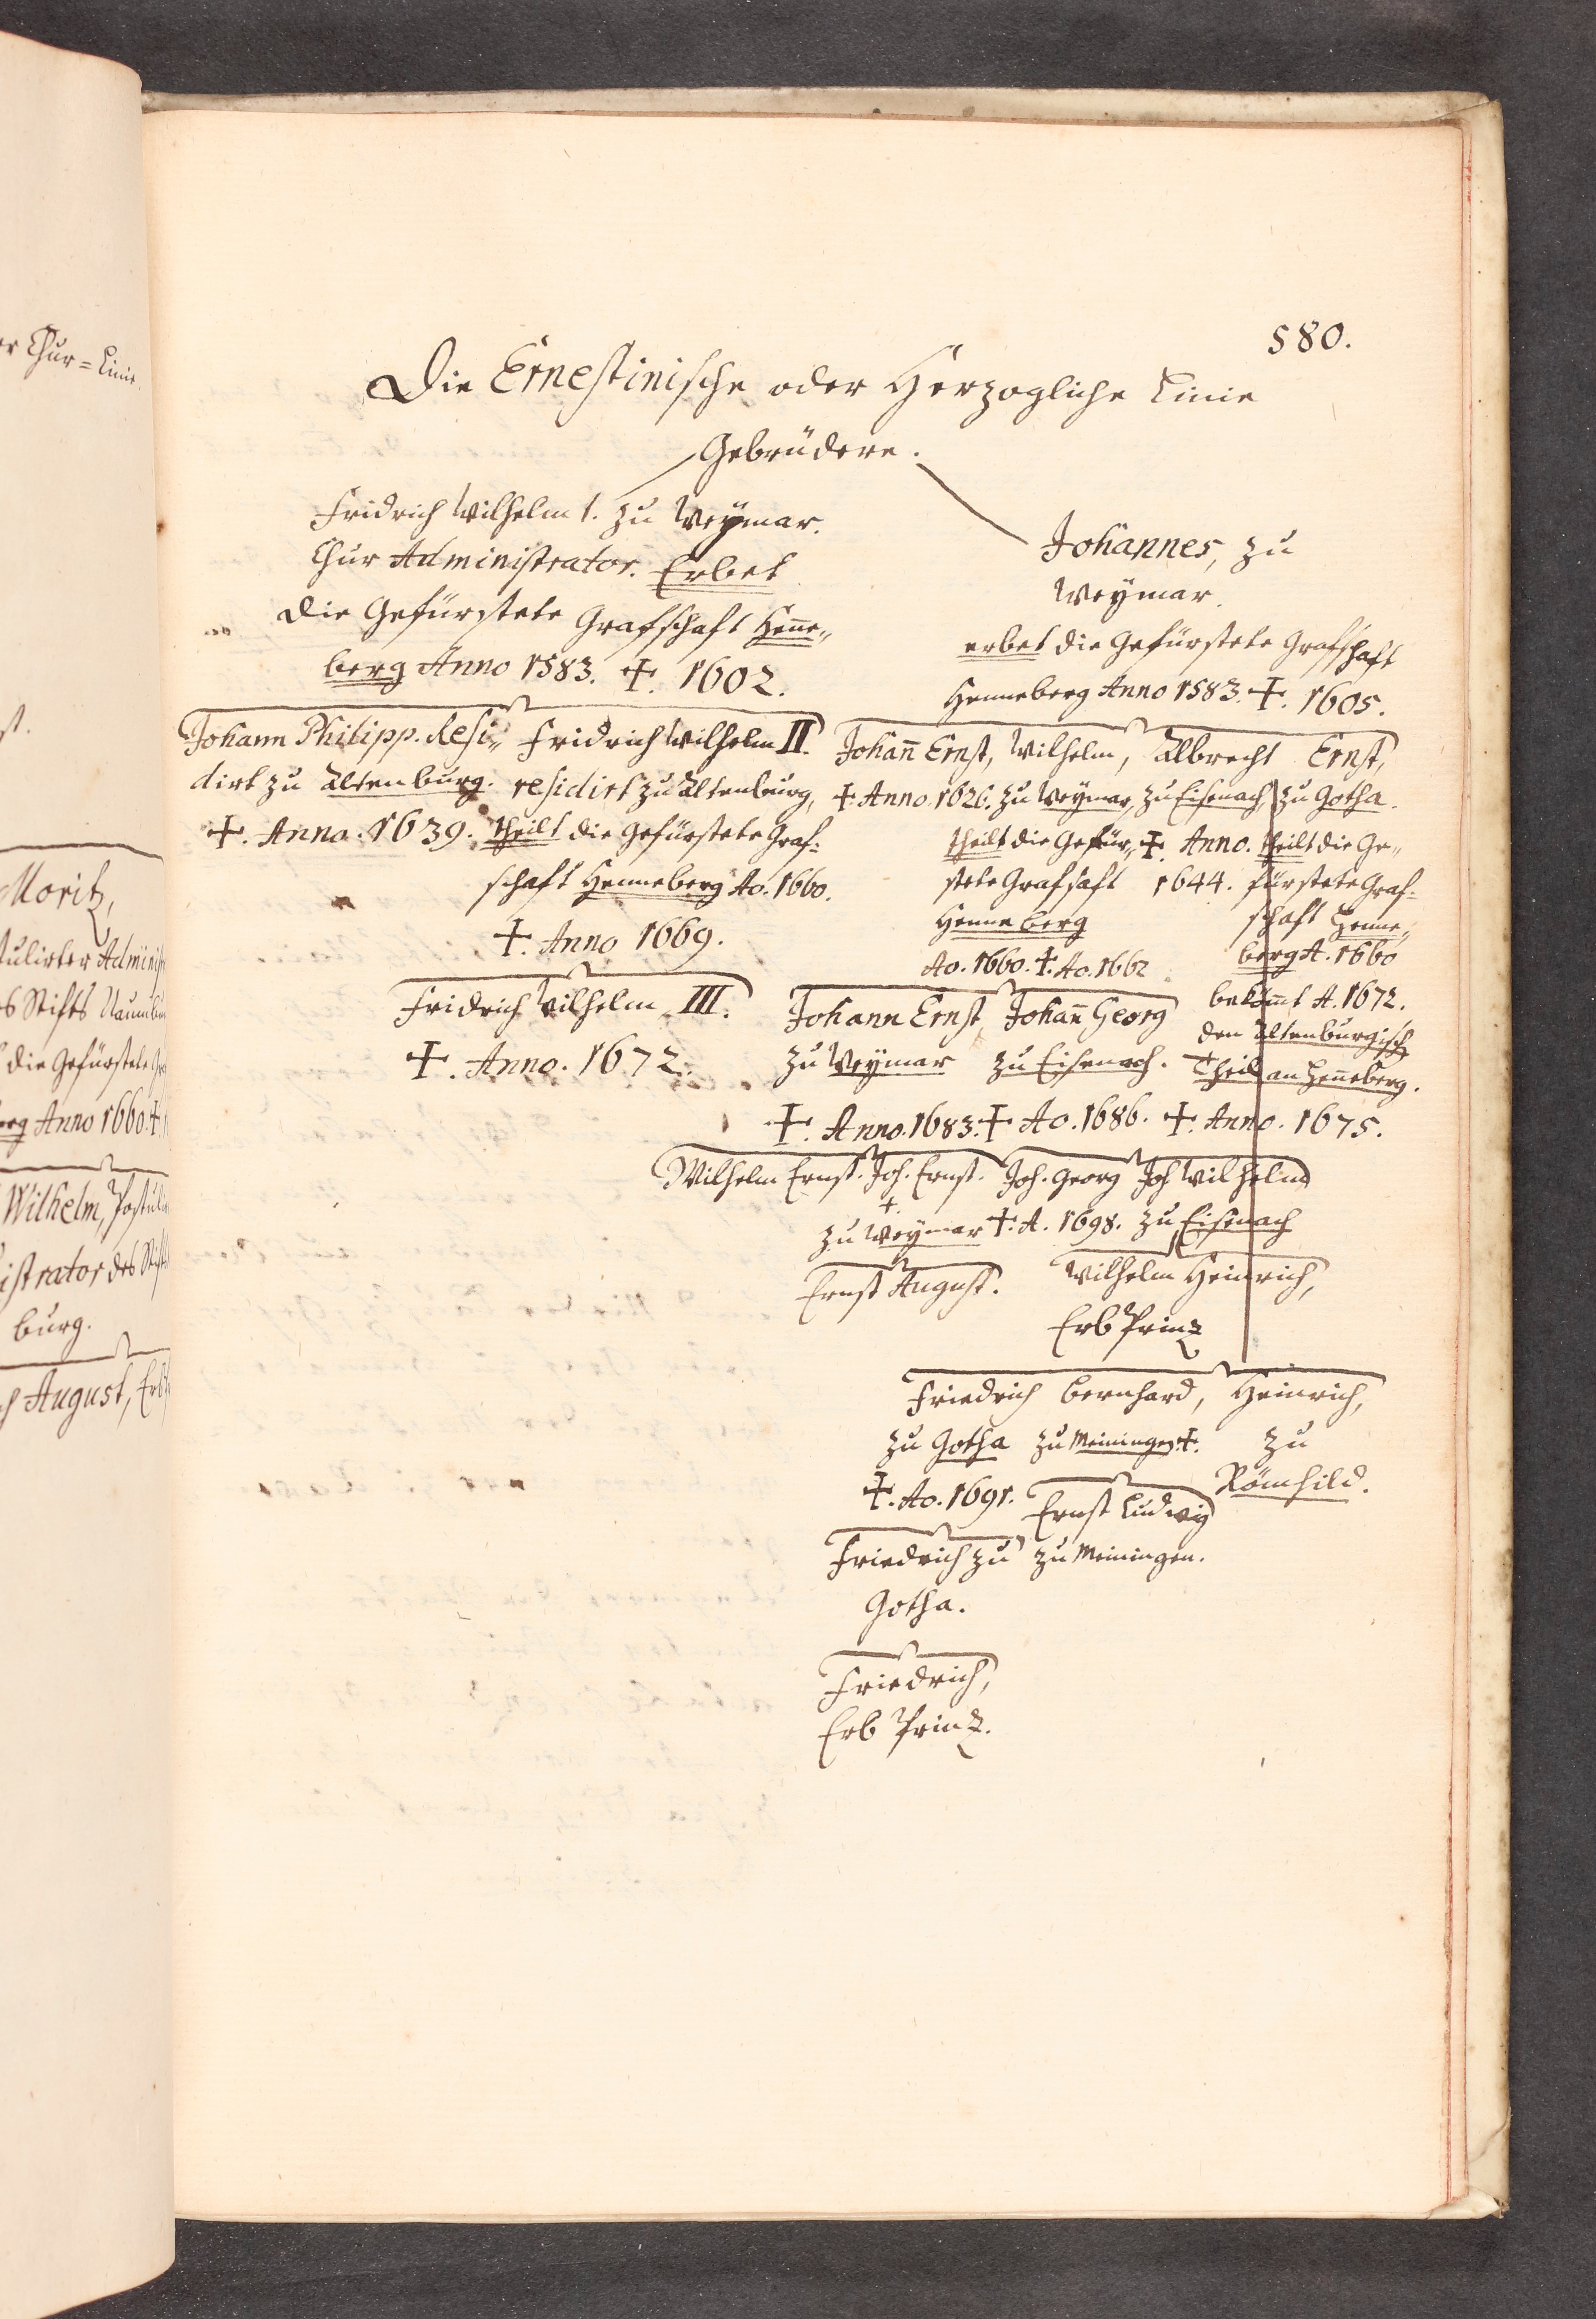 580.
Die Ernestinische oder Herzogliche Linie
Gebrüdere.
Fridrich Wilhelm 1. zu Weymar.
Chur Administrator. Erbet
die Gefürstete Grafschaft Henne„
berg Anno 1583. ✝. 1602.
Johannes, zu
Weymar.
erbet die Gefürstete Grafschaft
Henneberg Anno 1583. ✝. 1605.
Johann Philipp. Resi„
dirt zu Altenburg.
✝. Anno. 1639.
Fridrich Wilhelm II.
residirt zu Altenburg,
theilt die Gefürstete Graf:
schaft Henneberg Ao. 1660.
✝. Anno 1669.
Johan̄ Ernst,
✝. Anno 1626.
Wilhelm,
zu Weymar,
theilt die Gefür„
stete Grafsaft
Henneberg
Ao. 1660. ✝. Ao. 1662
Albrecht
zu Eisenach
✝. Anno.
1644.
Ernst,
zu Gotha.
theilt die Ge„
fürstete Graf-
schaft Henne„
berg A. 1660
bekom̄t A. 1672.
den Altenburgisch
Theil an Hen̄eberg.
✝. Anno. 1675.
Fridrich Wilhelm III.
✝. Anno. 1672.
Johann Ernst,
zu Weymar
✝. Anno. 1683.
Johan̄ Georg
zu Eisenach.
✝ Ao. 1686.
Wilhelm Ernst. Joh. Ernst. Joh. Georg Joh Wilhelm
✝.
zu Weymar ✝. A. 1698. zu Eisenach
Ernst August.
Wilhelm Heinrich,
Erb Printz
Friedrich Bernhard, Heinrich,
zu Gotha zu Meiningen ✝. zu
✝. Ao. 1691. Römhild.
Ernst Ludwig
zu Meiningen.
Friedrich zu
Gotha.
Friedrich,
Erb Printz.
Chur=Linie
Moritz,
tulirter
s Stifts
die Gefürstete
Anno 1660. ✝.
Wilhelm,
istrator des
burg.
August,